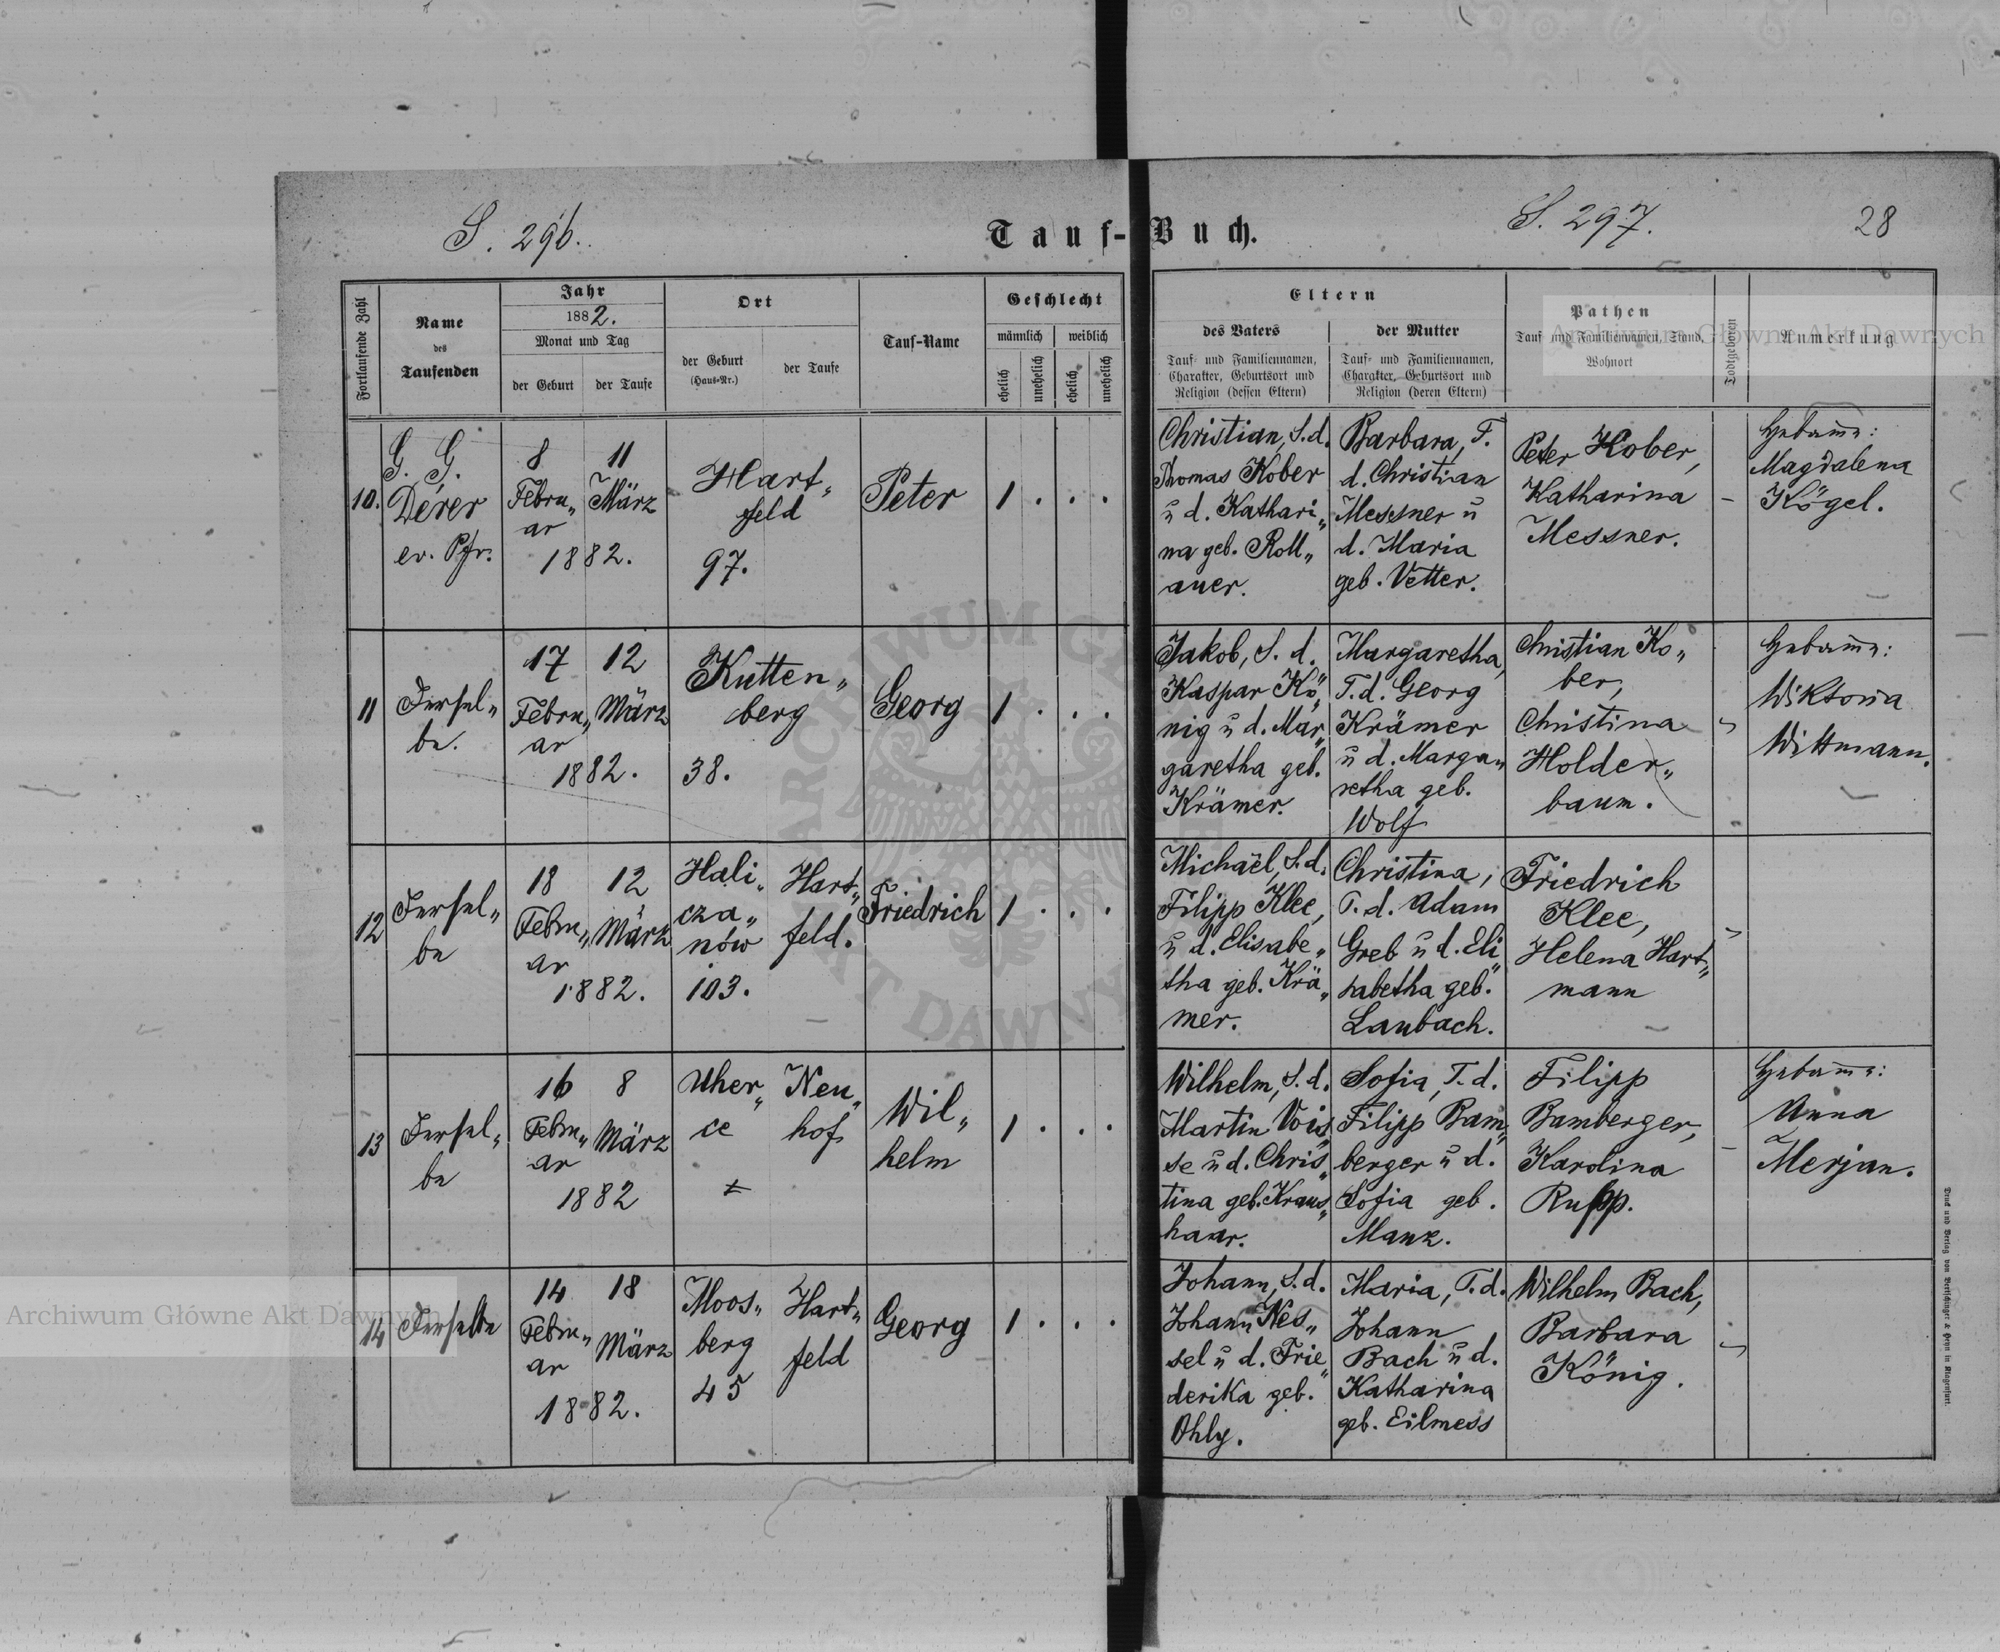 S. 296.
Tauf-Buch.
S. 297.
28
Fortlaufende Zahl
Name
des
Taufenden
Jahr
1882.
Monat und Tag
der Geburt
der Taufe
Ort
der Geburt
(Haus-Nr.)
der Taufe
Tauf-Name
Geschlecht
männlich
weiblich
ehelich
unehelich
ehelich
unehelich
Eltern
des Vaters
Tauf- und Familiennamen,
Charakter, Geburtsort und
Religion (dessen Eltern)
der Mutter
Tauf- und Familiennamen,
Charakter, Geburtsort und
Religion (deren Eltern)
Pathen
Tauf- und Familiennamen, Stand,
Wohnort
Todtgeboren
Anmerkung
10.
G. G.
Dérer
ev. Pfr.
8
Febru„
ar
11
März
1882.
Hart„
feld
97.
Peter
1 . . .
Christian, S. d.
Thomas Kober
u d. Kathari„
na geb. Roll„
auer.
Barbara, T.
d. Christian
Messner u
d. Maria
geb. Vetter.
Peter Kober,
Katharina
Messner.
–
Hebamme:
Magdalena
Kögel.
11
Dersel„
be.
17
Febru„
ar
12
März
1882.
Kutten„
berg
38.
Georg
1 . . .
Jakob, S. d.
Kaspar Kö„
nig u d. Mar„
garetha geb.
Krämer.
Margaretha,
T. d. Georg
Krämer
u d. Marga„
retha geb.
Wolf
Christian Ko„
ber,
Christina
Holder„
baum.
Hebamme:
Wiktoria
Wittmann.
12
Dersel„
be
18
Febru„
ar
12
März
1882.
Hali„
cza„
nów
103.
Hart„
feld.
Friedrich
1 . . .
Michael, S. d.
Filipp Klee,
u d. Elisabe„
tha geb. Krä„
mer.
Christina,
T. d. Adam
Greb u d. Eli„
sabetha geb.
Laubach.
Friedrich
Klee,
Helena Hart„
mann
13
Dersel„
be
16
Febru„
ar
8
März
1882
Uher„
ce
Neu„
hof
Wil„
helm
1 . . .
Wilhelm, S. d.
Martin Vois„
se u d. Chris„
tina geb. Kraus„
haar.
Sofia, T. d.
Filipp Bam„
berger u d.
Sofia geb.
Manz.
Filipp
Bamberger,
Karolina
Rupp.
–
Hebamme:
Anna
Merjan.
14
Derselbe
14
Febru„
ar
18
März
1882.
Moos„
berg
45
Hart„
feld
Georg
1 . . .
Johann, S. d.
Johann Nes„
sel u d. Frie„
derika geb.
Ohly.
Maria, T. d.
Johann
Bach u d.
Katharina
geb. Eilmess
Wilhelm Bach,
Barbara
König.
Archiwum Główne Akt Dawnych
Archiwum Główne Akt Dawnych
ARCHIWUM GŁÓWNE AKT DAWNYCH